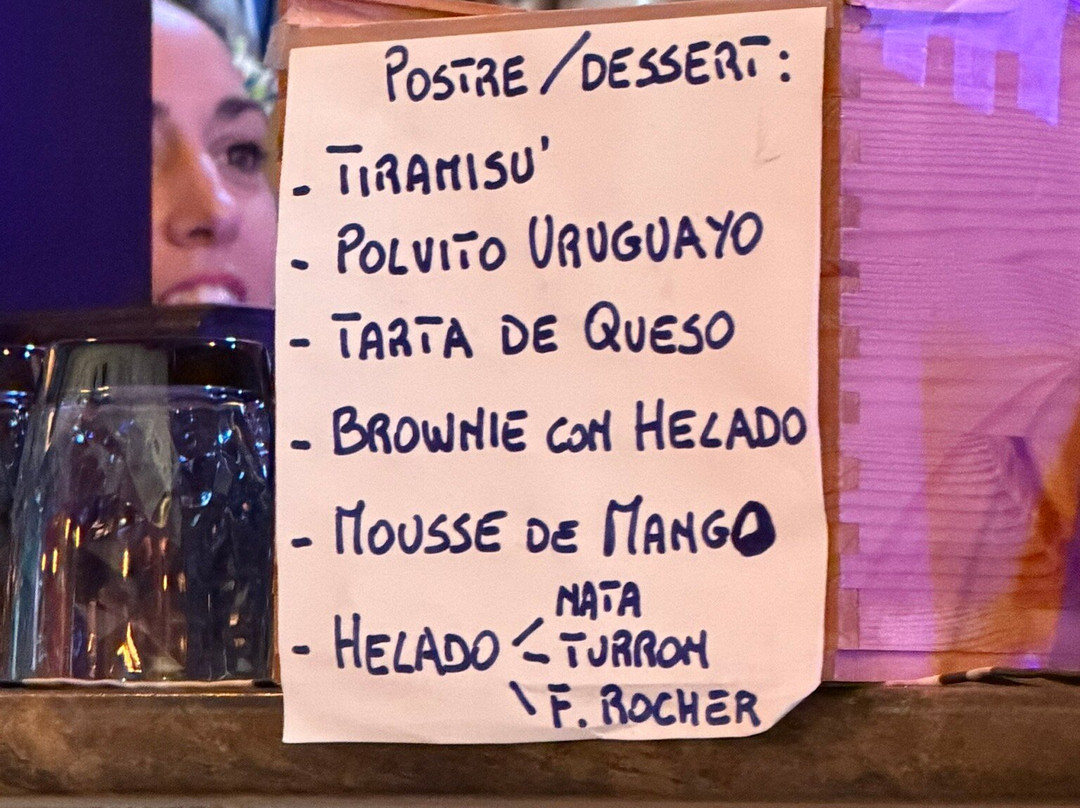 POSTRE/DESSERT:
- TIRAMISU'
- POLVITO URUGUAYO
- TARTA DE QUESO
- BROWNIE CON HELADO
- MOUSSE DE MANGO
- HELADO < NATA
- TURRON
\ F. ROCHER